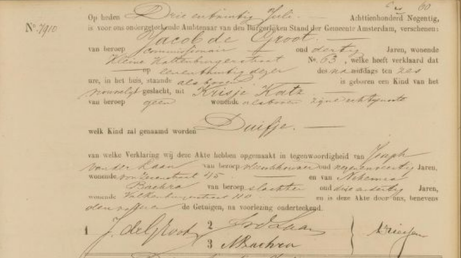 60
Op heden Drie en twintig Juli Achttienhonderd Negentig,
No. 7910 is voor ons ondergeteekende Ambtenaar van den Burgerlijken Stand der Gemeente Amsterdam, verschenen:
Jacob de Groot
van beroep commissionair oud dertig Jaren, wonende
Kleine Kattenburgerstraat No. 63, welke heeft verklaard dat
op een en twintig dezer des namiddags ten zes
ure, in het huis, staande als boven is geboren een Kind van het
geslacht, uit Krisje Katz
van beroep geen wonende als boven zijne echtgenoote
welk Kind zal genaamd worden Duifje.
van welke Verklaring wij deze Akte hebben opgemaakt in tegenwoordigheid van Joseph
van beroep oud Jaren,
wonende 45 en van Nehemia
Bachra van beroep slachter oud Jaren,
wonende Valkenburgerstraat 110 en is deze Akte door hen, benevens
de Getuigen, na voorlezing onderteekend.
1 J. de Groot 2
3 N Bachra